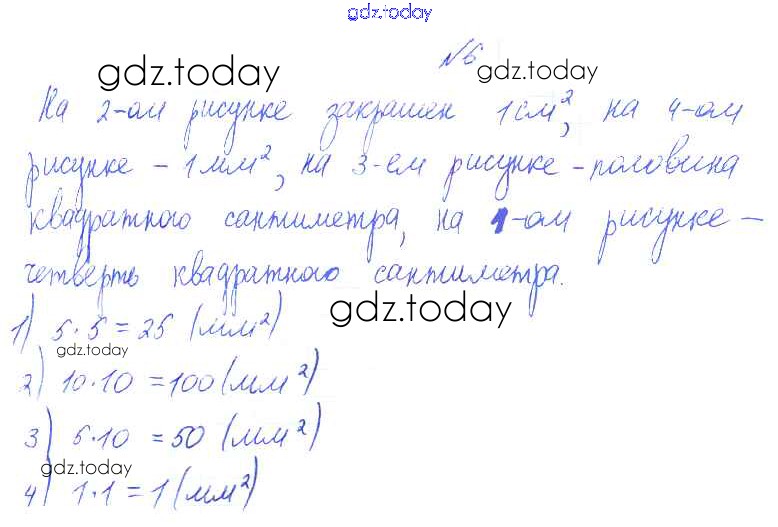 gdz.today
№6
gdz.today gdz.today
На 2-ом рисунке закрашен 1 см², на 4-ом
рисунке - 1 мм², на 3-ем рисунке - половина
квадратного сантиметра, на 1-ом рисунке -
четверть квадратного сантиметра.
gdz.today
1) 5·5 = 25 (мм²)
gdz.today
2) 10·10 = 100 (мм²)
3) 5·10 = 50 (мм²)
gdz.today
4) 1·1 = 1 (мм²)